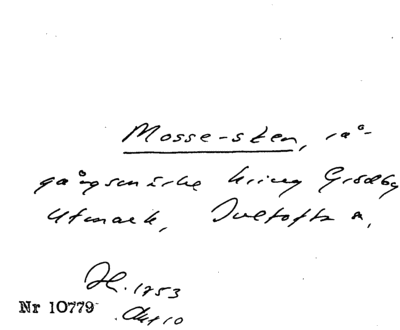 Mosse-sten, rå-
gångsmärke kring Grödby
Utmark, Tveltofta s,
H. 1753
Akt 10
Nr 10779